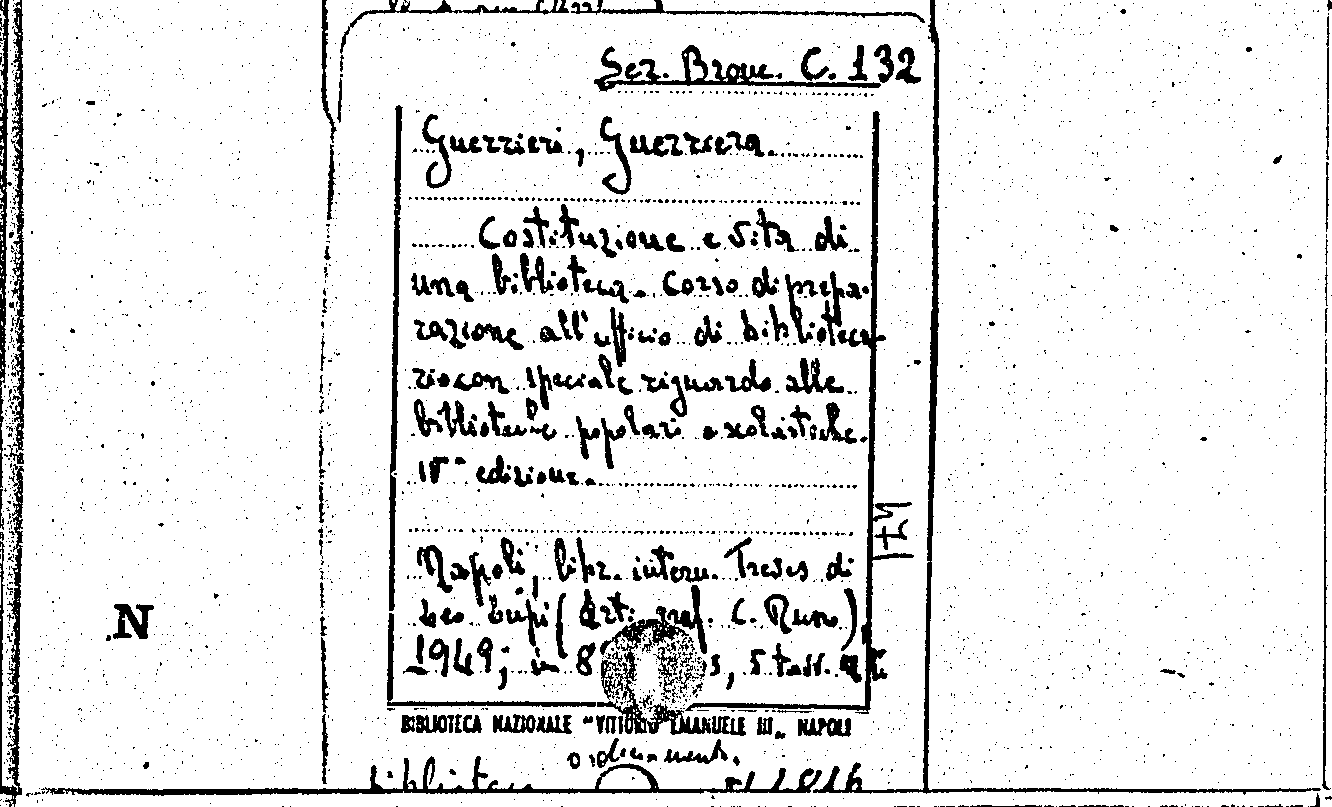 Sez. Brouc. C. 132
Guerrieri, Guerriera.
Costituzione e vita di
una biblioteca. Corso di prepa-
razione all'ufficio di biblioteca-
rio con speciale riguardo alle
biblioteche popolari e scolastiche.
IVª edizione.
Napoli, libr. intern. Treves di
Leo Lupi (Arti graf. C. Russo),
1949; in 8° s, 5 tavv.
N
BIBLIOTECA NAZIONALE "VITTORIO EMANUELE III„ NAPOLI